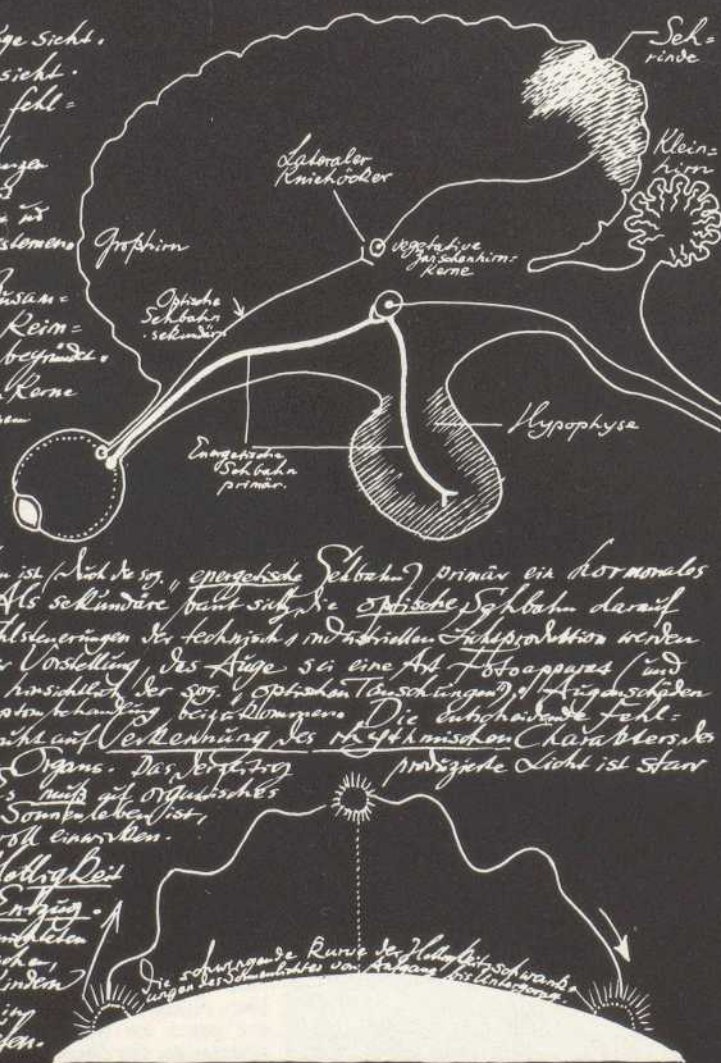 ge sieht.
sieht.
fehl=
Seh=
rinde
Lateraler
Kniehöcker
Klein=
hirn
Großhirn
vegetative
Zwischenhirn=
Kerne
Optische
Sehbahn
sekundär
usam=
Keim=
begründet.
Kerne
Hypophyse
Energetische
Sehbahn
primär.
n ist (durch die sog. „energetische Sehbahn“) primär ein hormonales
Als sekundäre baut sich die optische Sehbahn darauf
hlsteuerungen der technisch, industriellen Lichtproduktion werden
r Vorstellung, das Auge sei eine Art Fotoapparat (und
hinsichtlich der sog. „optischen Täuschungen“). Augenschäden
ptombehandlung beizukommen. Die entscheidende Fehl=
ruht auf Verkennung des rhythmischen Charakters des
Organs. Das derzeitig produzierte Licht ist starr
s muß auf organisches
Sonnenleben ist,
roll einwirken.
Helligkeit
Entzug.
Die schwingende Kurve der Helligkeitsschwank=
ungen des Sonnenlichtes von Aufgang bis Untergang.